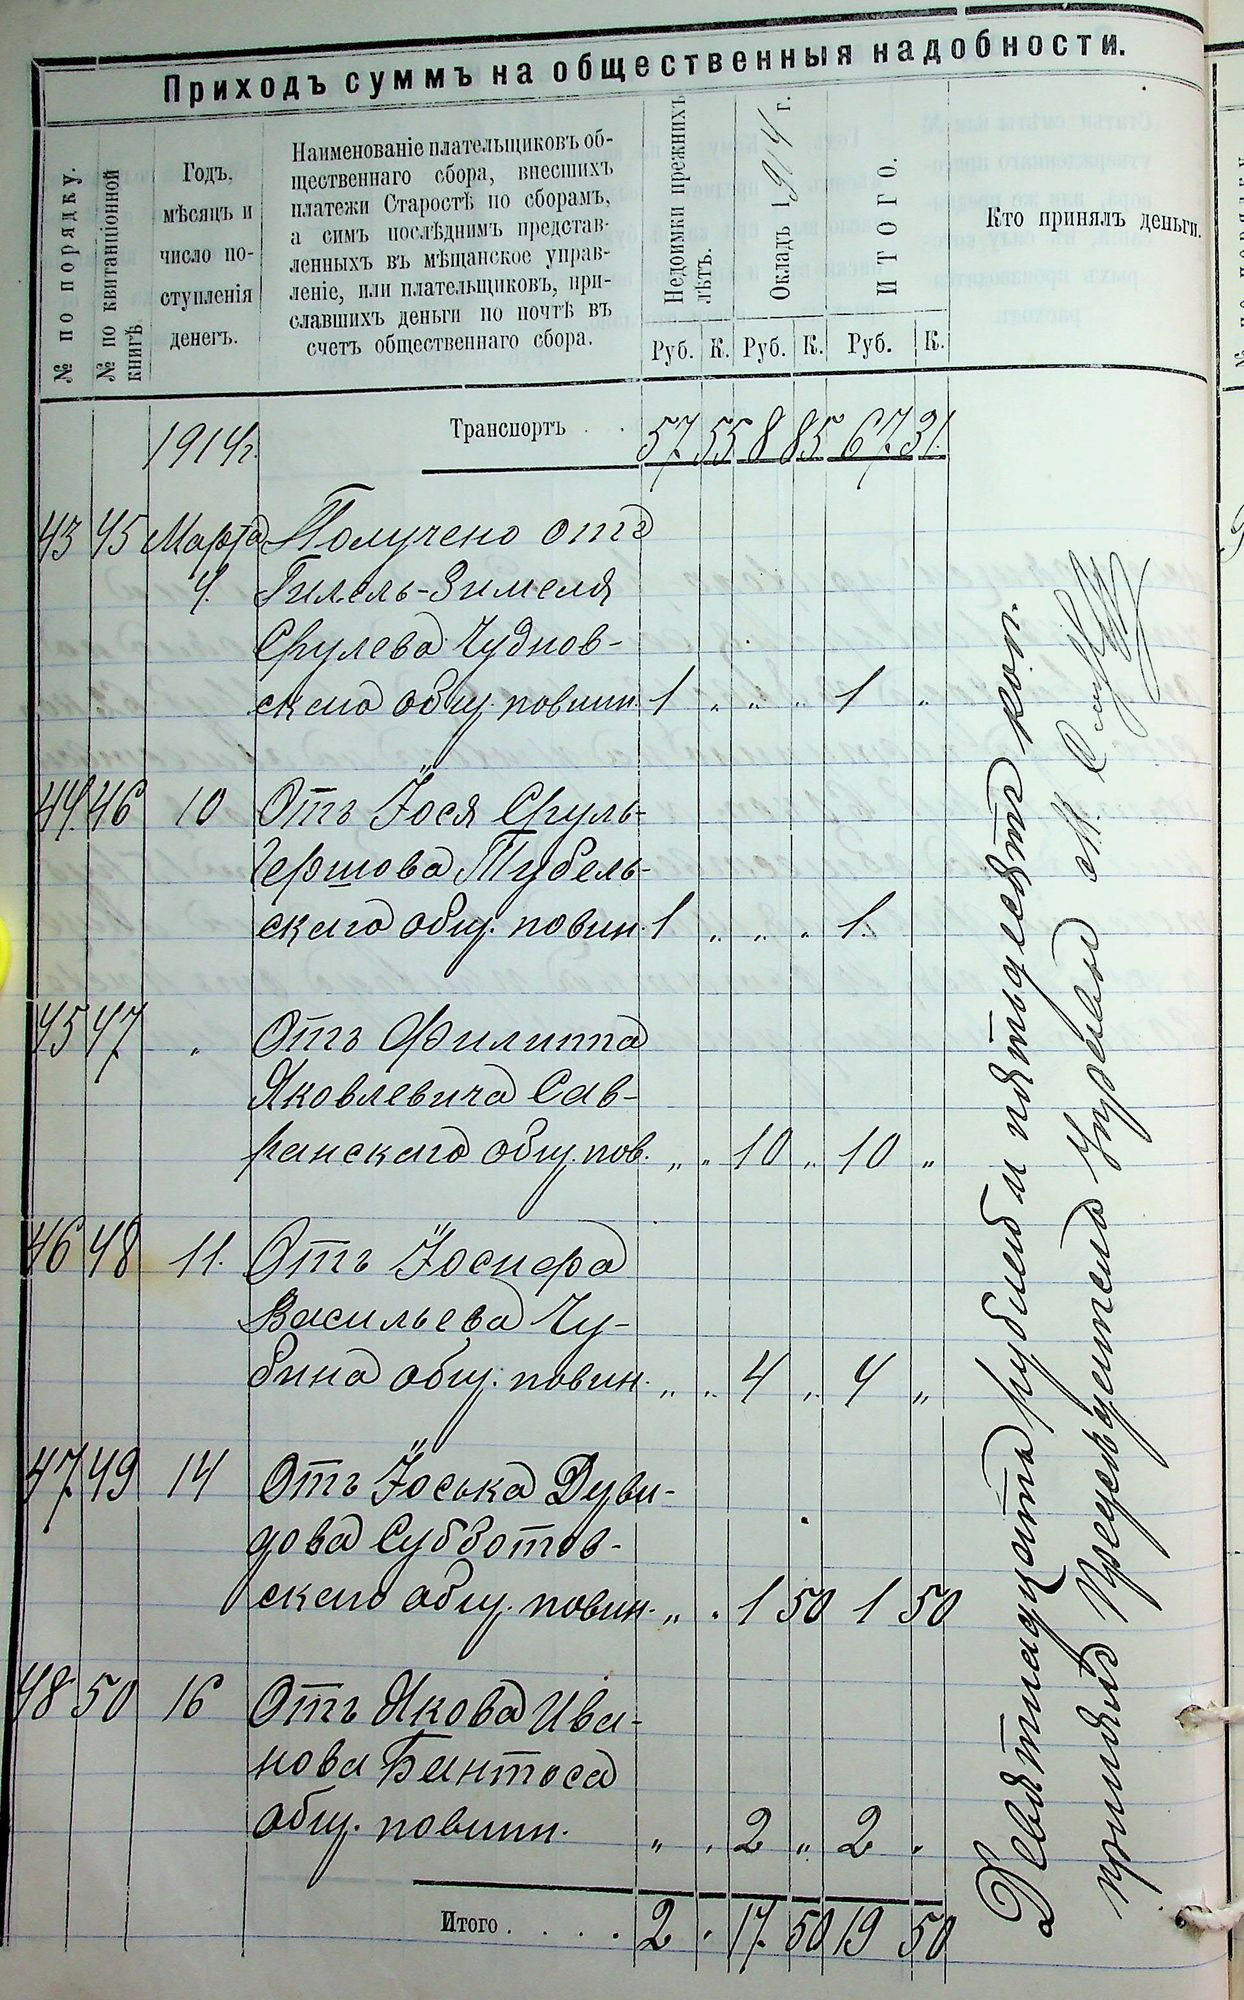 Приходъ суммъ на общественныя надобности.
№ по порядку.
№ по квитанціонной
книгѣ.
Годъ,
мѣсяцъ и
число по-
ступленія
денегъ.
Наименованіе плательщиковъ об-
щественнаго сбора, внесшихъ
платежи Старостѣ по сборамъ,
а симъ послѣднимъ представ-
ленныхъ въ мѣщанское управ-
леніе, или плательщиковъ, при-
славшихъ деньги по почтѣ въ
счетъ общественнаго сбора.
Недоимки прежнихъ
лѣтъ.
Окладъ 1914 г.
ИТОГО.
Кто принялъ деньги.
Руб. К. Руб. К. Руб. К.
1914г. Транспортъ . . 57 55 8 85 67 31.
43 45 Марта Получено отъ
4. Гилель-Зимеля
Срулева Чуднов-
скаго общ. повин. 1 „ „ „ 1 „
44 46 10 Отъ Іося Сруль-
Гершова Тубель-
скаго общ. повин. 1 „ „ „ 1.
45 47 „ Отъ Филиппа
Яковлевича Сав-
ранскаго общ. пов. „ „ 10 „ 10 „
46 48 11. Отъ Іосифа
Васильева Чу-
бина общ. повин. „ „ 4 „ 4 „
47 49 14 Отъ Іоська Дуви-
дова Субботов-
скаго общ. повин. „ „ 1 50 1 50
48 50 16 Отъ Якова Ива-
нова Бантоса
общ. повин. „ „ 2 „ 2 „
Итого . . . . 2 „ 17. 50 19 50
Девятнадцать рублей и пятьдесятъ коп.
принялъ Предсѣдатель Управы М.